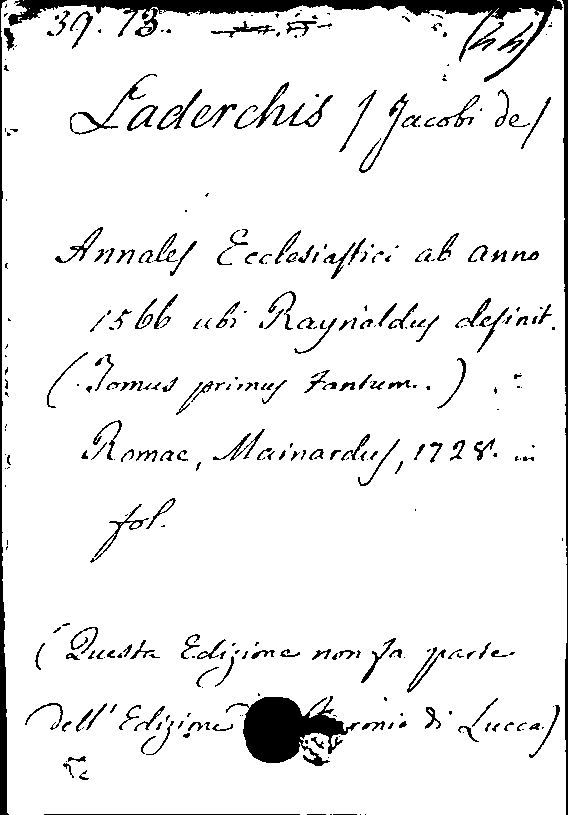 39. 13. (44)
Laderchis / Jacobi de /
Annales Ecclesiastici ab anno
1566 ubi Raynaldus definit.
(Tomus primus tantum..)
Romae, Mainardus, 1728. in
fol.
(Questa Edizione non fa parte
dell' Edizione Baronio di Lucca)